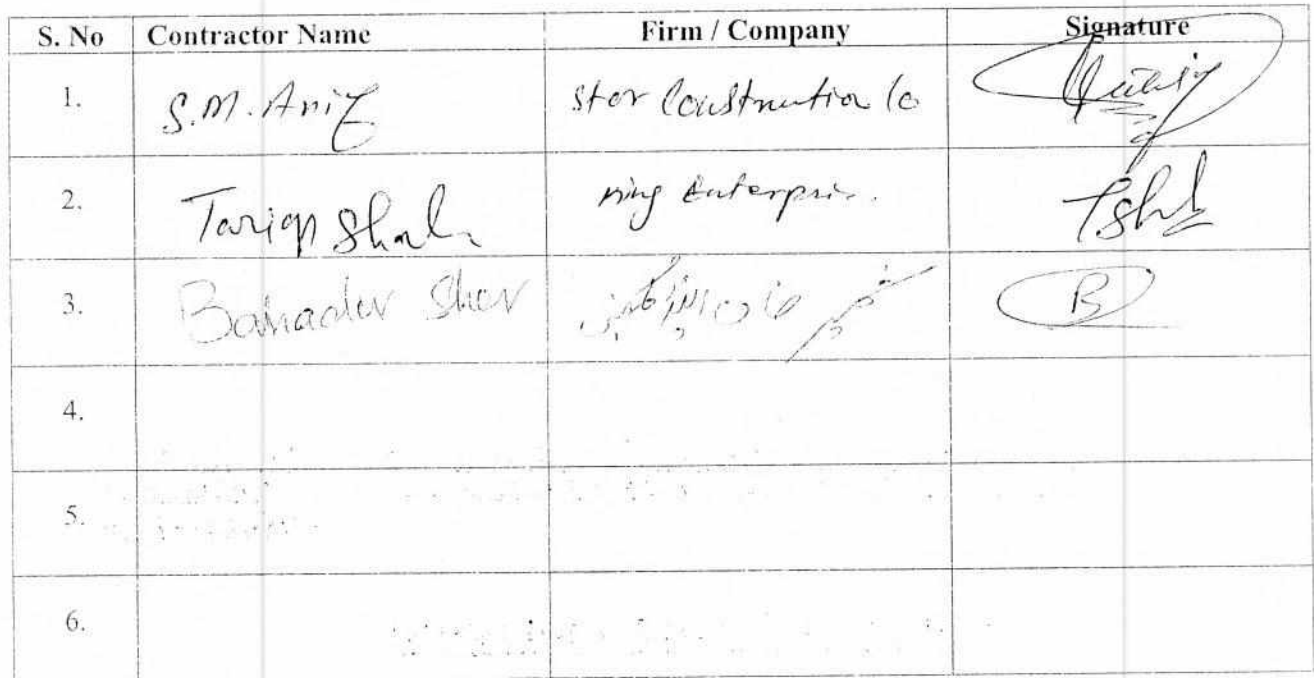 S. No Contractor Name Firm / Company Signature
1. S.M. Arif Star Construction Co
2. Tariq Shah Enterpris.
3. Bahader Sher خان
4.
5.
6.